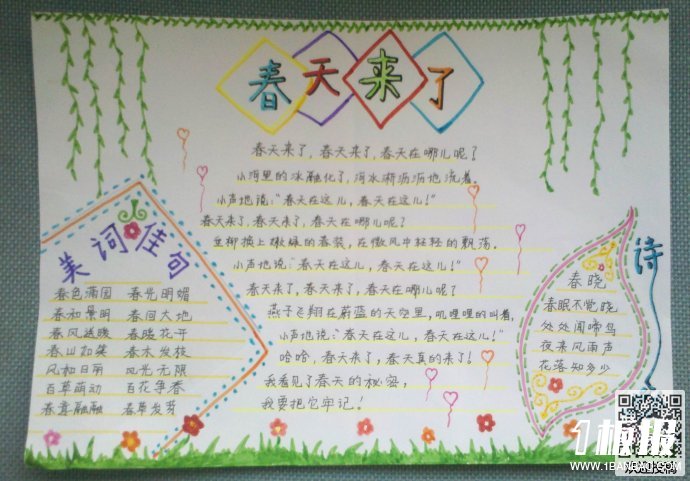 春天来了
春天来了,春天来了,春天在哪儿呢?
小河里的冰融化了,河水淅沥沥地流着,
小声地说:"春天在这儿,春天在这儿!"
春天来了,春天来了,春天在哪儿呢?
垂柳换上嫩绿的春装,在微风中轻轻的飘荡。
小声地说:"春天在这儿,春天在这儿!"
春天来了,春天来了,春天在哪儿呢?
燕子飞翔在蔚蓝的天空里,叽哩哩的叫着,
小声地说:"春天在这儿,春天在这儿!"
哈哈,春天来了,春天真的来了!
我看见了春天的秘密,
我要把它牢记!
美词佳句
春色满园 春光明媚
春和景明 春回大地
春风送暖 春暖花开
春山如笑 春木发枝
风和日丽 风光无限
百草萌动 百花争春
春意融融 春草发芽
诗
春晓
春眠不觉晓
处处闻啼鸟
夜来风雨声
花落知多少
1板报
WWW.1BANBAO.COM
欢迎投稿